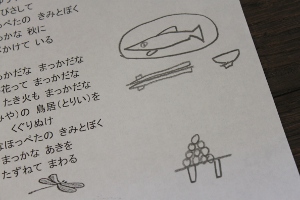 びさして
っぺたの きみとぼく
かな 秋に
かけて いる
っかだな まっかだな
花って まっかだな
たき火も まっかだな
や)の 鳥居(とりい)を
くぐりぬけ
なほっぺたの きみとぼく
まっかな あきを
たずねて まわる